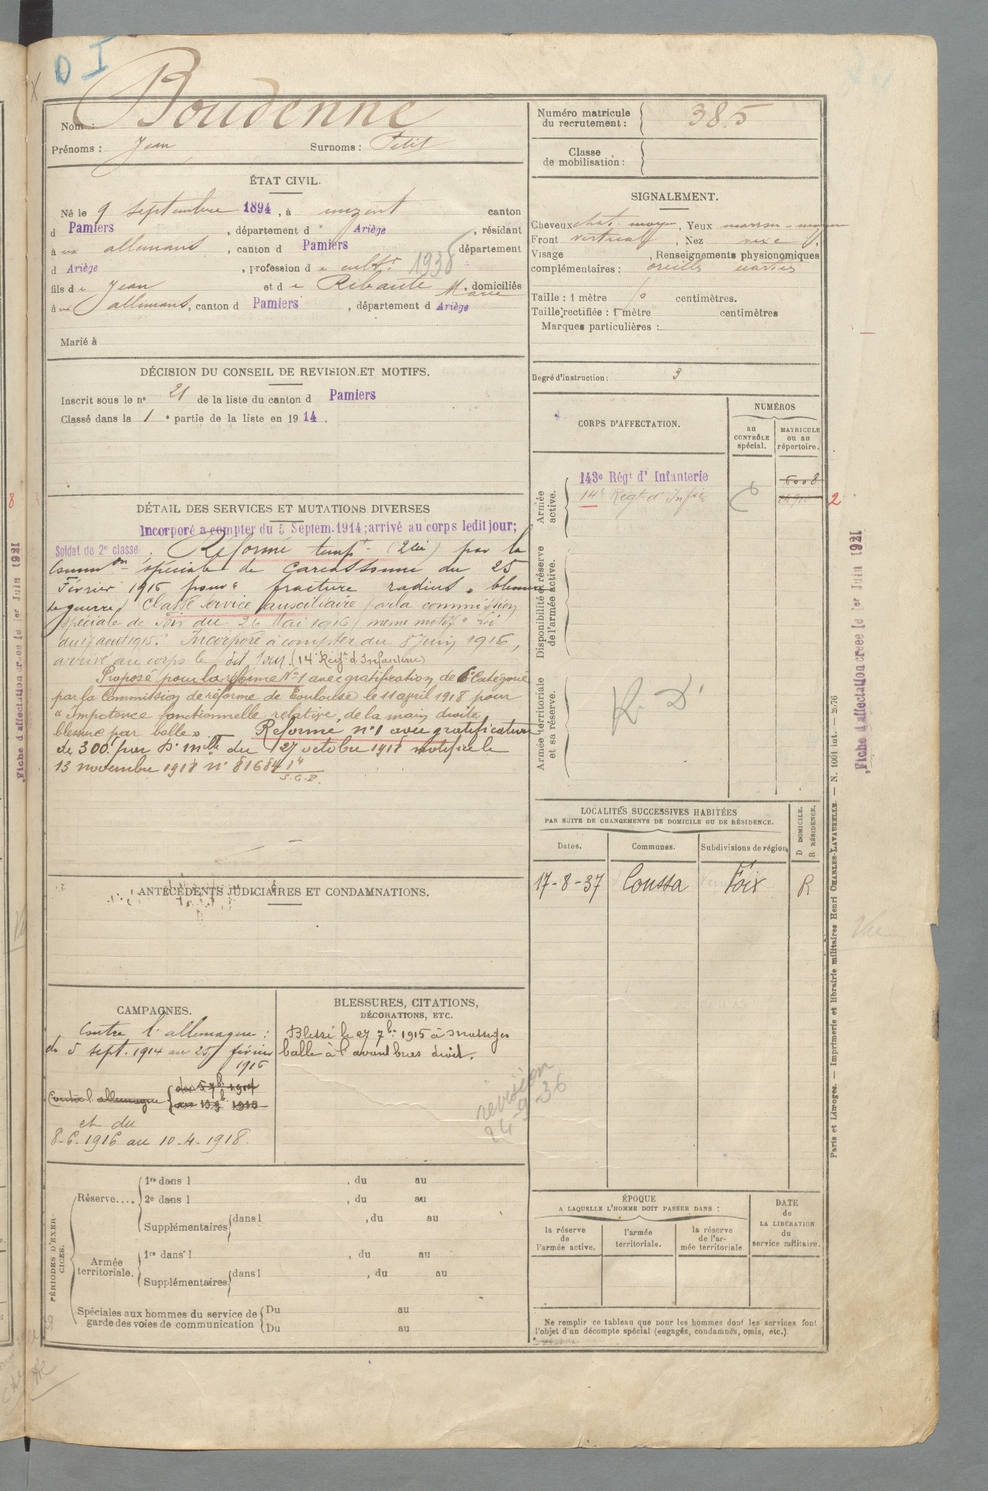 D I
Boudenne
Nom :
Prénoms : Jean Surnoms : Petit
ÉTAT CIVIL.
Né le 9 septembre 1894, à canton
d Pamiers, département d Ariège, résidant
à allemans, canton d Pamiers département
d Ariège, profession d e cultr 1938
fils de Jean et de Ribaute Marie, domiciliés
à allemans, canton d Pamiers, département d Ariège
Marié à
DÉCISION DU CONSEIL DE REVISION ET MOTIFS.
Inscrit sous le n° 21 de la liste du canton d Pamiers
Classé dans la 1e partie de la liste en 1914.
DÉTAIL DES SERVICES ET MUTATIONS DIVERSES
Incorporé à compter du 5 Septem. 1914; arrivé au corps ledit jour;
Soldat de 2e classe. Réformé tempt par la
Common spéciale de Carcassonne du 25
Février 1916 pour " fracture radius, blessure
de guerre, Classé service auxiliaire par la commission
spéciale de Foix du 26 Mai 1916 (même motif
du 17 août 1915. Incorporé à compter du 8 juin 1916,
arrivé au corps le dit jour. (14e Régt d'Infanterie)
Proposé pour la réforme N°1 avec gratification de 6e Catégorie
par la Commission de réforme de Toulouse le 11 april 1918 pour
" Impotence fonctionnelle relative, de la main droite
blessure par balle ». Réformé n°1 avec gratification
de 300f par D. mlle du 27 octobre 1918 notifiée le
13 novembre 1918 n° 81684 1e
S.G.P.
ANTÉCÉDENTS JUDICIAIRES ET CONDAMNATIONS.
CAMPAGNES.
Contre l'allemagne :
du 5 sept. 1914 au 25 février
1916
Contre l'allemagne { du 5 7b 1914
au 1915
et du
8-6-1916 au 10-4-1918.
BLESSURES, CITATIONS,
DÉCORATIONS, ETC.
Blessé le 27 7bre 1915 à
balle à l'avant bras droit.
revision
24-9-36
PÉRIODES D'EXERCICES.
Réserve....
1re dans l , du au
2e dans l , du au
Supplémentaires { dans l , du au
Armée territoriale.
1re dans l , du au
Supplémentaires { dans l , du au
Spéciales aux hommes du service de garde des voies de communication { Du au
{ Du au
Numéro matricule
du recrutement : 385
Classe
de mobilisation :
SIGNALEMENT.
Cheveux chat. moyen, Yeux marron moyen
Front vertical, Nez
Visage , Renseignements physionomiques
complémentaires :
Taille : 1 mètre centimètres.
Taille rectifiée : 1 mètre centimètres
Marques particulières :
Degré d'instruction : 3
CORPS D'AFFECTATION.
NUMÉROS
au
CONTRÔLE
spécial.
MATRICULE
ou au
répertoire.
Armée
active.
143e Régt d'Infanterie 6008
14e Régt d'Infie 2
Disponibilité et réserve
de l'armée active.
Armée territoriale
et sa réserve.
R. D.
LOCALITÉS SUCCESSIVES HABITÉES
PAR SUITE DE CHANGEMENTS DE DOMICILE OU DE RÉSIDENCE.
Dates. Communes. Subdivisions de région.
D DOMICILE.
R RÉSIDENCE.
17-8-37 Coussa Foix R
ÉPOQUE
A LAQUELLE L'HOMME DOIT PASSER DANS :
la réserve
de
l'armée active.
l'armée
territoriale.
la réserve
de l'ar-
mée territoriale
DATE
de
LA LIBÉRATION
du
service militaire.
Ne remplir ce tableau que pour les hommes dont les services font
l'objet d'un décompte spécial (engagés, condamnés, omis, etc.)
Paris et Limoges. — Imprimerie et librairie militaires Henri CHARLES-LAVAUZELLE. — N. 1001 int. — 2676
Fiche d'affectation créée le 1er Juin 1921
Fiche d'affectation créée le 1er Juin 1921
8